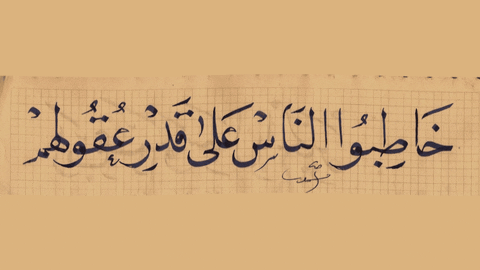 خَاطِبُوا النَاسْ عَلىٰ قَدْرِ عُقُولهِمْ